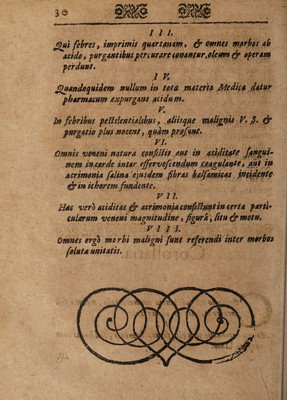 30
III.
Qui febres, imprimis quartanam, & omnes morbos ab
acido, purgantibus percurare conantur, oleum & operam
perdunt.
IV.
Quandoquidem nullum in tota materia Medica datur
pharmacum expurgans acidum.
V.
In febribus pestilentialibus, aliisque malignis V. S. &
purgatio plus nocent, quàm prosunt.
VI.
Omnis veneni natura consistit aut in aciditate sangui-
nem in corde inter effervescendum coagulante, aut in
acrimonia salina ejusdem fibras balsamicas incidente
& in ichorem fundente.
VII.
Hac verò aciditas & acrimonia consistunt in certa parti-
cularum veneni magnitudine, figurâ, situ & motu.
VIII.
Omnes ergò morbi maligni sunt referendi inter morbos
soluta unitatis.